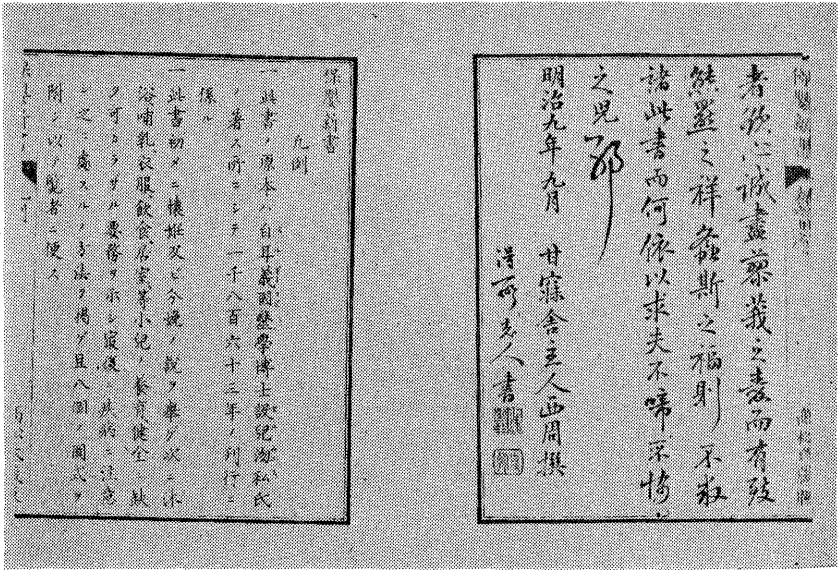 者欲心誠盡蓼莪之妻而有致
熊羆之祥螽斯之福則不取
諸此書而何依以求夫不啼不惱
之兒耶
明治九年九月 甘寐舎主人西周撰
書
保嬰新書
凡例
一此書ノ原本ハ白耳義國醫學博士設兒淘私氏
ノ著ス所ニシテ一千八百六十三年ノ刊行ニ
係ル
一此書初メニ懐妊及ビ分娩ノ説ヲ擧ゲ次ニ沐
浴哺乳衣服飲食居室等小兒ノ養育健全ニ缺
ク可カラザル要務ヲ示シ最後ニ疾病ニ注意
シ之ニ處スルノ方法ヲ掲グ且八個ノ圖式ヲ
附シ以テ覧者ニ便ス